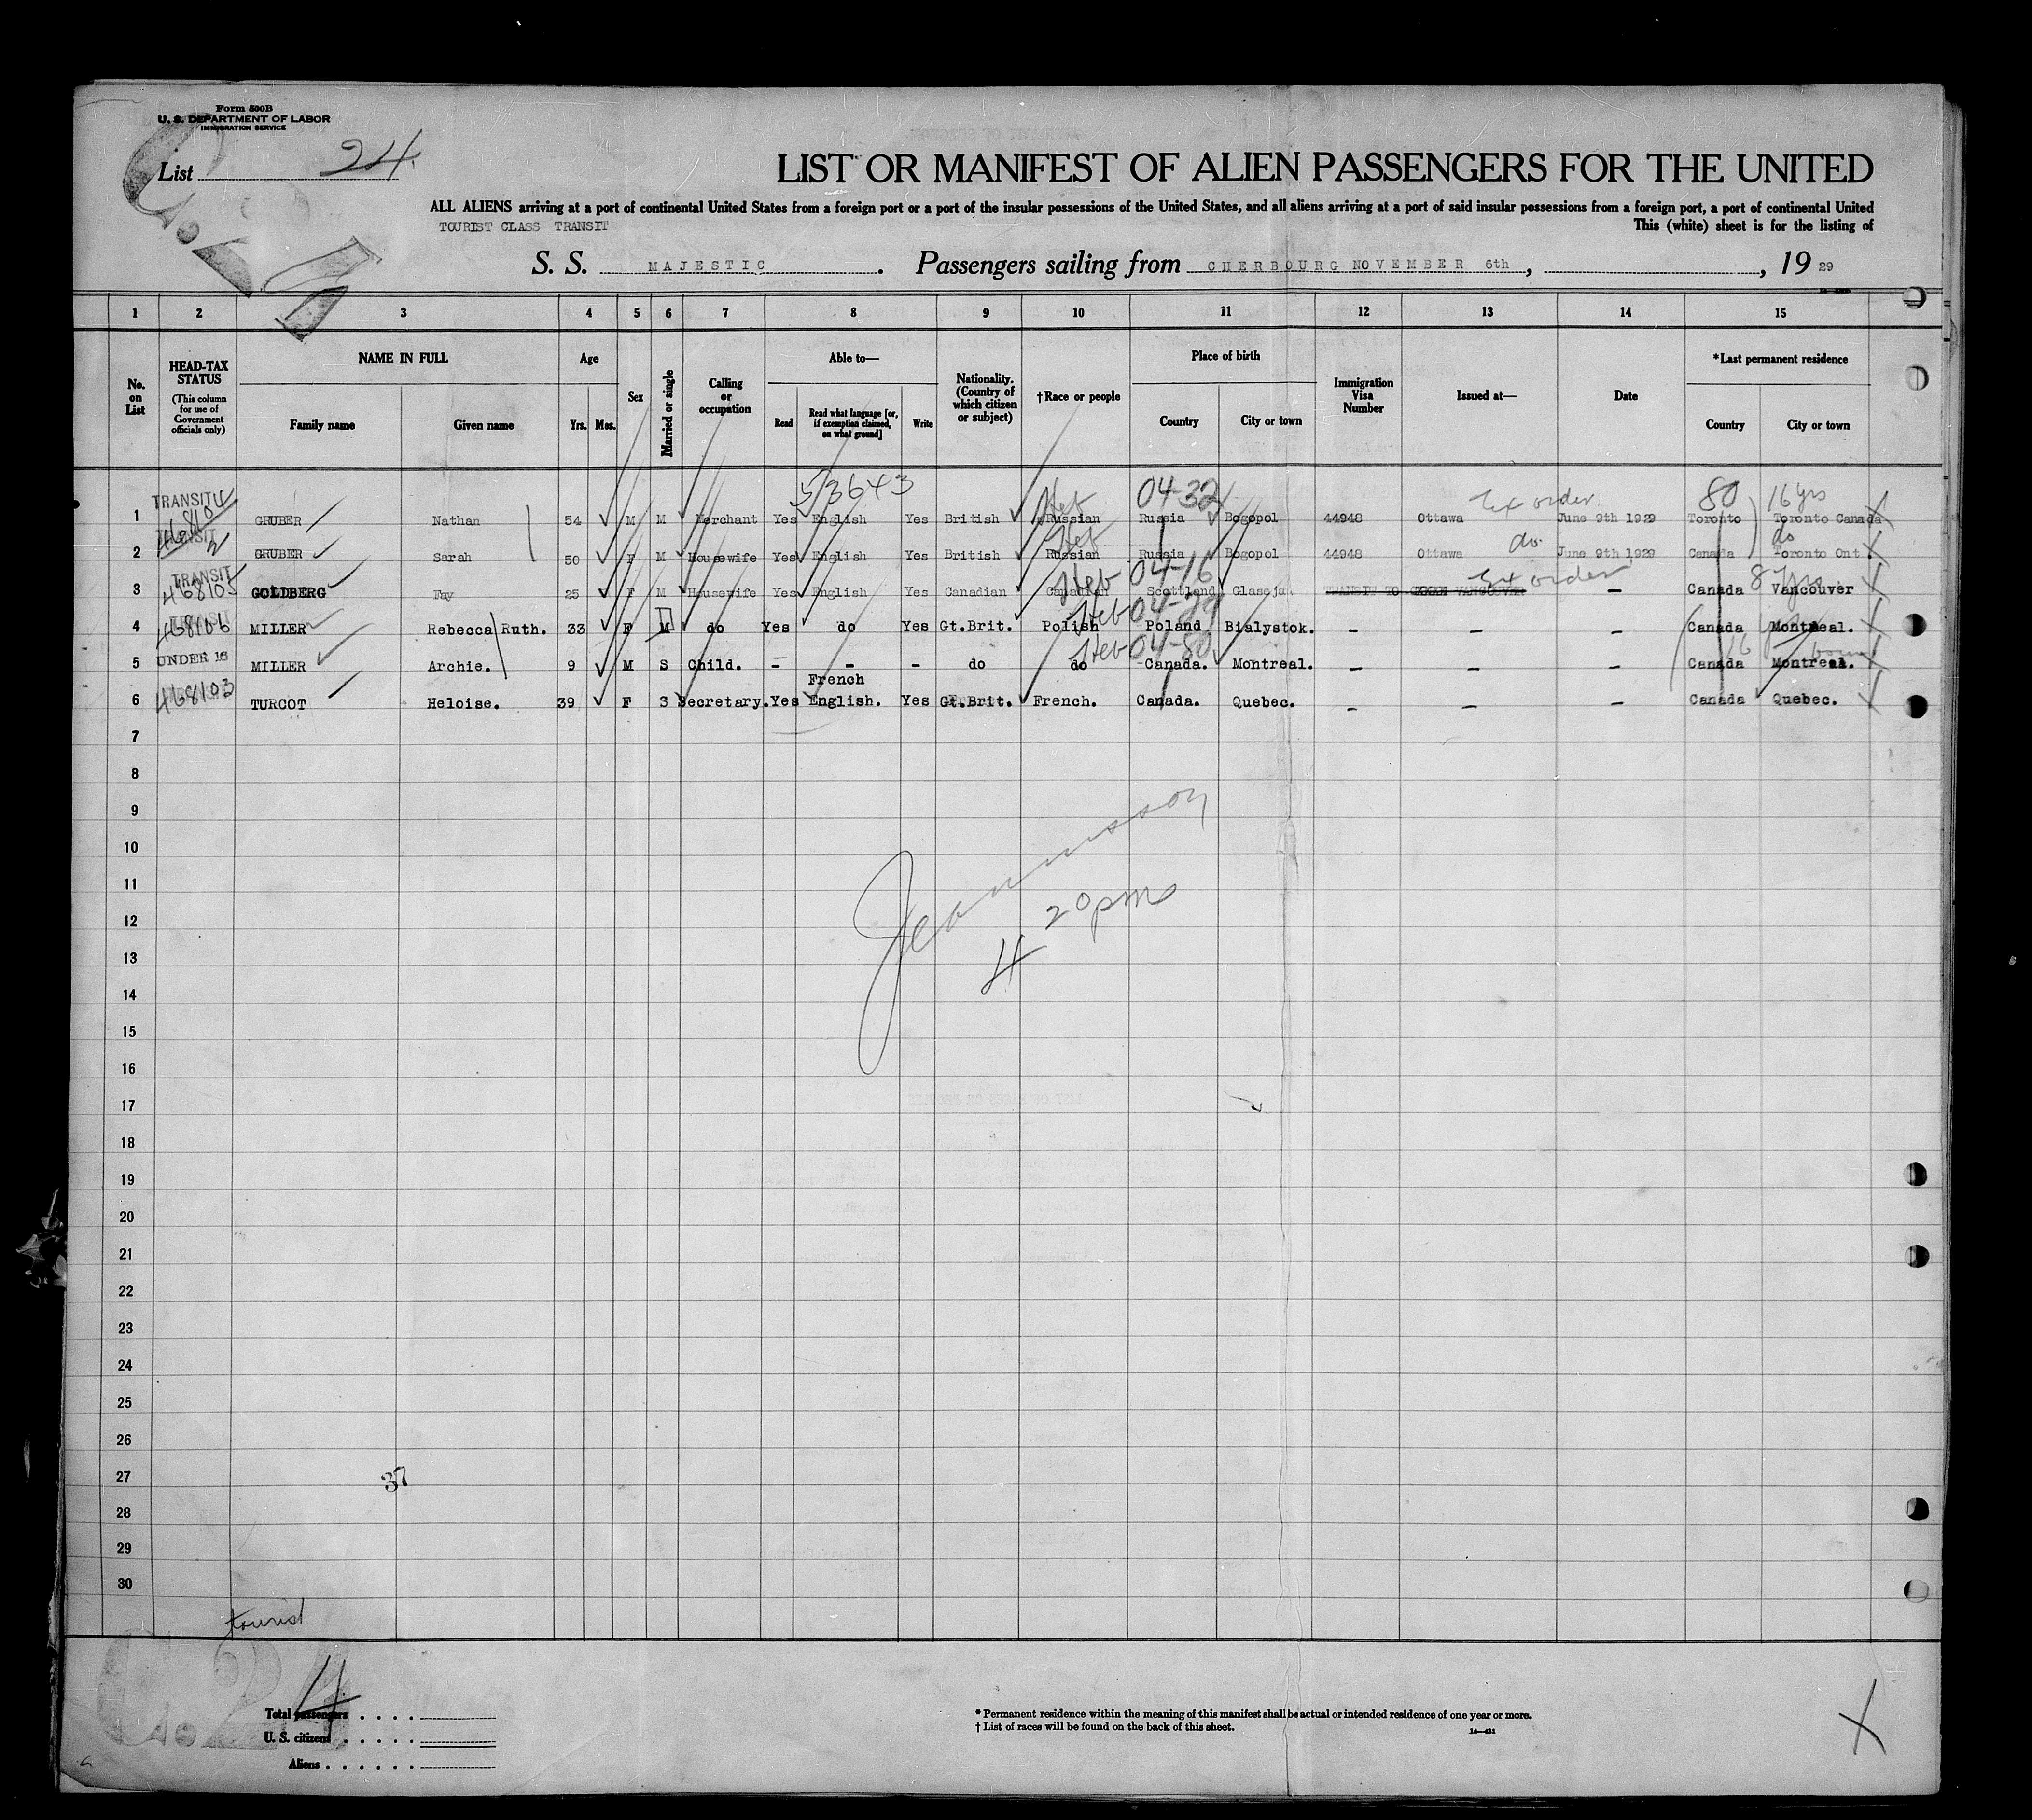 Form 500B
U. S. DEPARTMENT OF LABOR
IMMIGRATION SERVICE
List 24
LIST OR MANIFEST OF ALIEN PASSENGERS FOR THE UNITED
ALL ALIENS arriving at a port of continental United States from a foreign port or a port of the insular possessions of the United States, and all aliens arriving at a port of said insular possessions from a foreign port, a port of continental United
TOURIST CLASS TRANSIT
This (white) sheet is for the listing of
S. S. MAJESTIC. Passengers sailing from CHERBOURG NOVEMBER 6th, , 19 29
1 2 3 4 5 6 7 8 9 10 11 12 13 14 15
No. on List
HEAD-TAX STATUS
(This column for use of Government officials only)
NAME IN FULL
Family name
Given name
Age
Yrs.
Mos.
Sex
Married or single
Calling or occupation
Able to—
Read
Read what language [or, if exemption claimed, on what ground]
Write
Nationality. (Country of which citizen or subject)
†Race or people
Place of birth
Country
City or town
Immigration Visa Number
Issued at—
Date
*Last permanent residence
Country
City or town
53643 Heb 04-32 Ex order 80 16 yrs
1 TRANSIT 468104 GRUBER Nathan 54 M M Merchant Yes English Yes British Russian Russia Bogopol 44948 Ottawa June 9th 1929 Toronto Toronto Canada
Heb do. do
2 TRANSIT GRUBER Sarah 50 F M Housewife Yes English Yes British Russian Russia Bogopol 44948 Ottawa June 9th 1929 Canada Toronto Ont.
Heb 04-16 Ex order 8 yrs
3 TRANSIT 468105 GOLDBERG Fay 25 F M Housewife Yes English Yes Canadian Canadian Scottland TRANSIT TO VANCOUVER — Canada Vancouver
Heb
4 468106 MILLER Rebecca Ruth. 33 F M do Yes do Yes Gt.Brit. Polish Poland Bialystok. — — — Canada Montreal.
Heb 04-80 16
5 UNDER 16 MILLER Archie. 9 M S Child. — — — do do Canada. Montreal. — — — Canada Montreal.
French
6 468103 TURCOT Heloise. 39 F S Secretary. Yes English. Yes Gt.Brit. French. Canada. Quebec. — — — Canada Quebec.
7
8
9
10
11
12
4 20 pm
13
14
15
16
17
18
19
20
21
22
23
24
25
26
27 37
28
29
30
tourist
4
Total passengers . . . .
U. S. citizens . . . . .
Aliens . . . . . .
* Permanent residence within the meaning of this manifest shall be actual or intended residence of one year or more.
† List of races will be found on the back of this sheet.
14—421